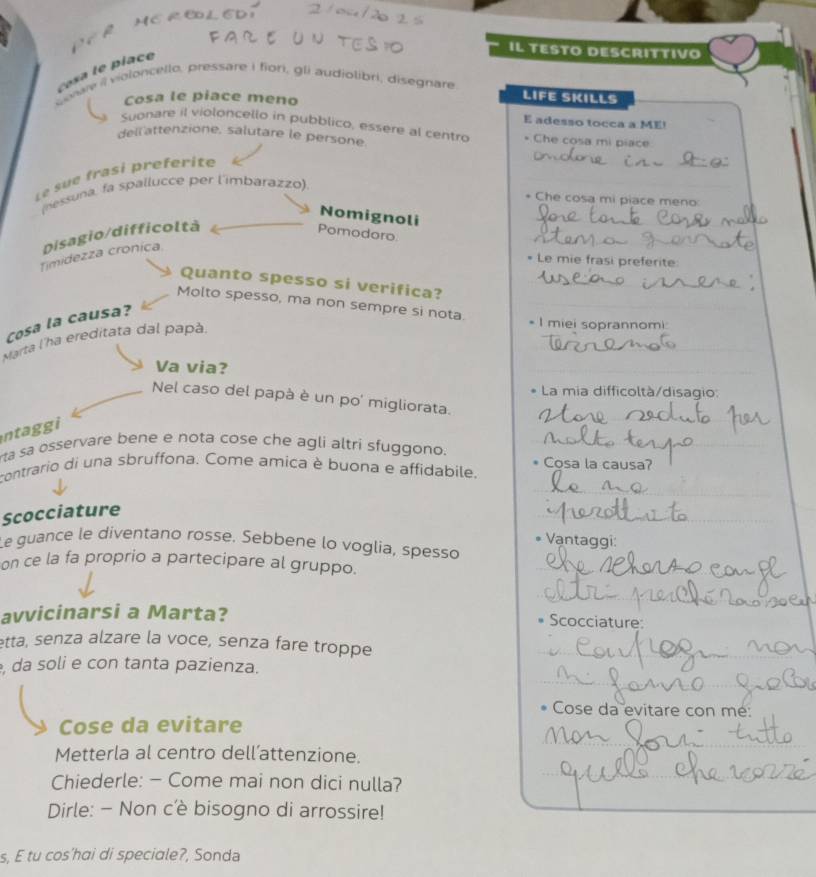 PER MERCOLEDÌ 2/04/2025
FARE UN TESTO
IL TESTO DESCRITTIVO
Cosa le piace
Suonare il violoncello, pressare i fiori, gli audiolibri, disegnare
Cosa le piace meno
Suonare il violoncello in pubblico, essere al centro
dell'attenzione, salutare le persone.
Le sue frasi preferite
(nessuna, fa spallucce per l'imbarazzo).
Nomignoli
Pomodoro.
Disagio/difficoltà
Timidezza cronica.
Quanto spesso si verifica?
Molto spesso, ma non sempre si nota.
Cosa la causa?
Marta l'ha ereditata dal papà.
Va via?
Nel caso del papà è un po' migliorata.
ntaggi
rta sa osservare bene e nota cose che agli altri sfuggono.
contrario di una sbruffona. Come amica è buona e affidabile.
scocciature
Le guance le diventano rosse. Sebbene lo voglia, spesso
on ce la fa proprio a partecipare al gruppo.
avvicinarsi a Marta?
etta, senza alzare la voce, senza fare troppe
e, da soli e con tanta pazienza.
Cose da evitare
Metterla al centro dell'attenzione.
Chiederle: – Come mai non dici nulla?
Dirle: – Non c'è bisogno di arrossire!
s, E tu cos'hai di speciale?, Sonda
LIFE SKILLS
E adesso tocca a ME!
• Che cosa mi piace
andare in
• Che cosa mi piace meno:
fare tante cose nella
stessa giornata
• Le mie frasi preferite:
• I miei soprannomi:
terremoto
• La mia difficoltà/disagio:
stare seduto per
molto tempo
• Cosa la causa?
la mia
iperattività
• Vantaggi:
che scherzo con gli
altri perché
• Scocciature:
i compagni non
mi fanno
• Cose da evitare con me:
non farmi tutto
quello che vorrei